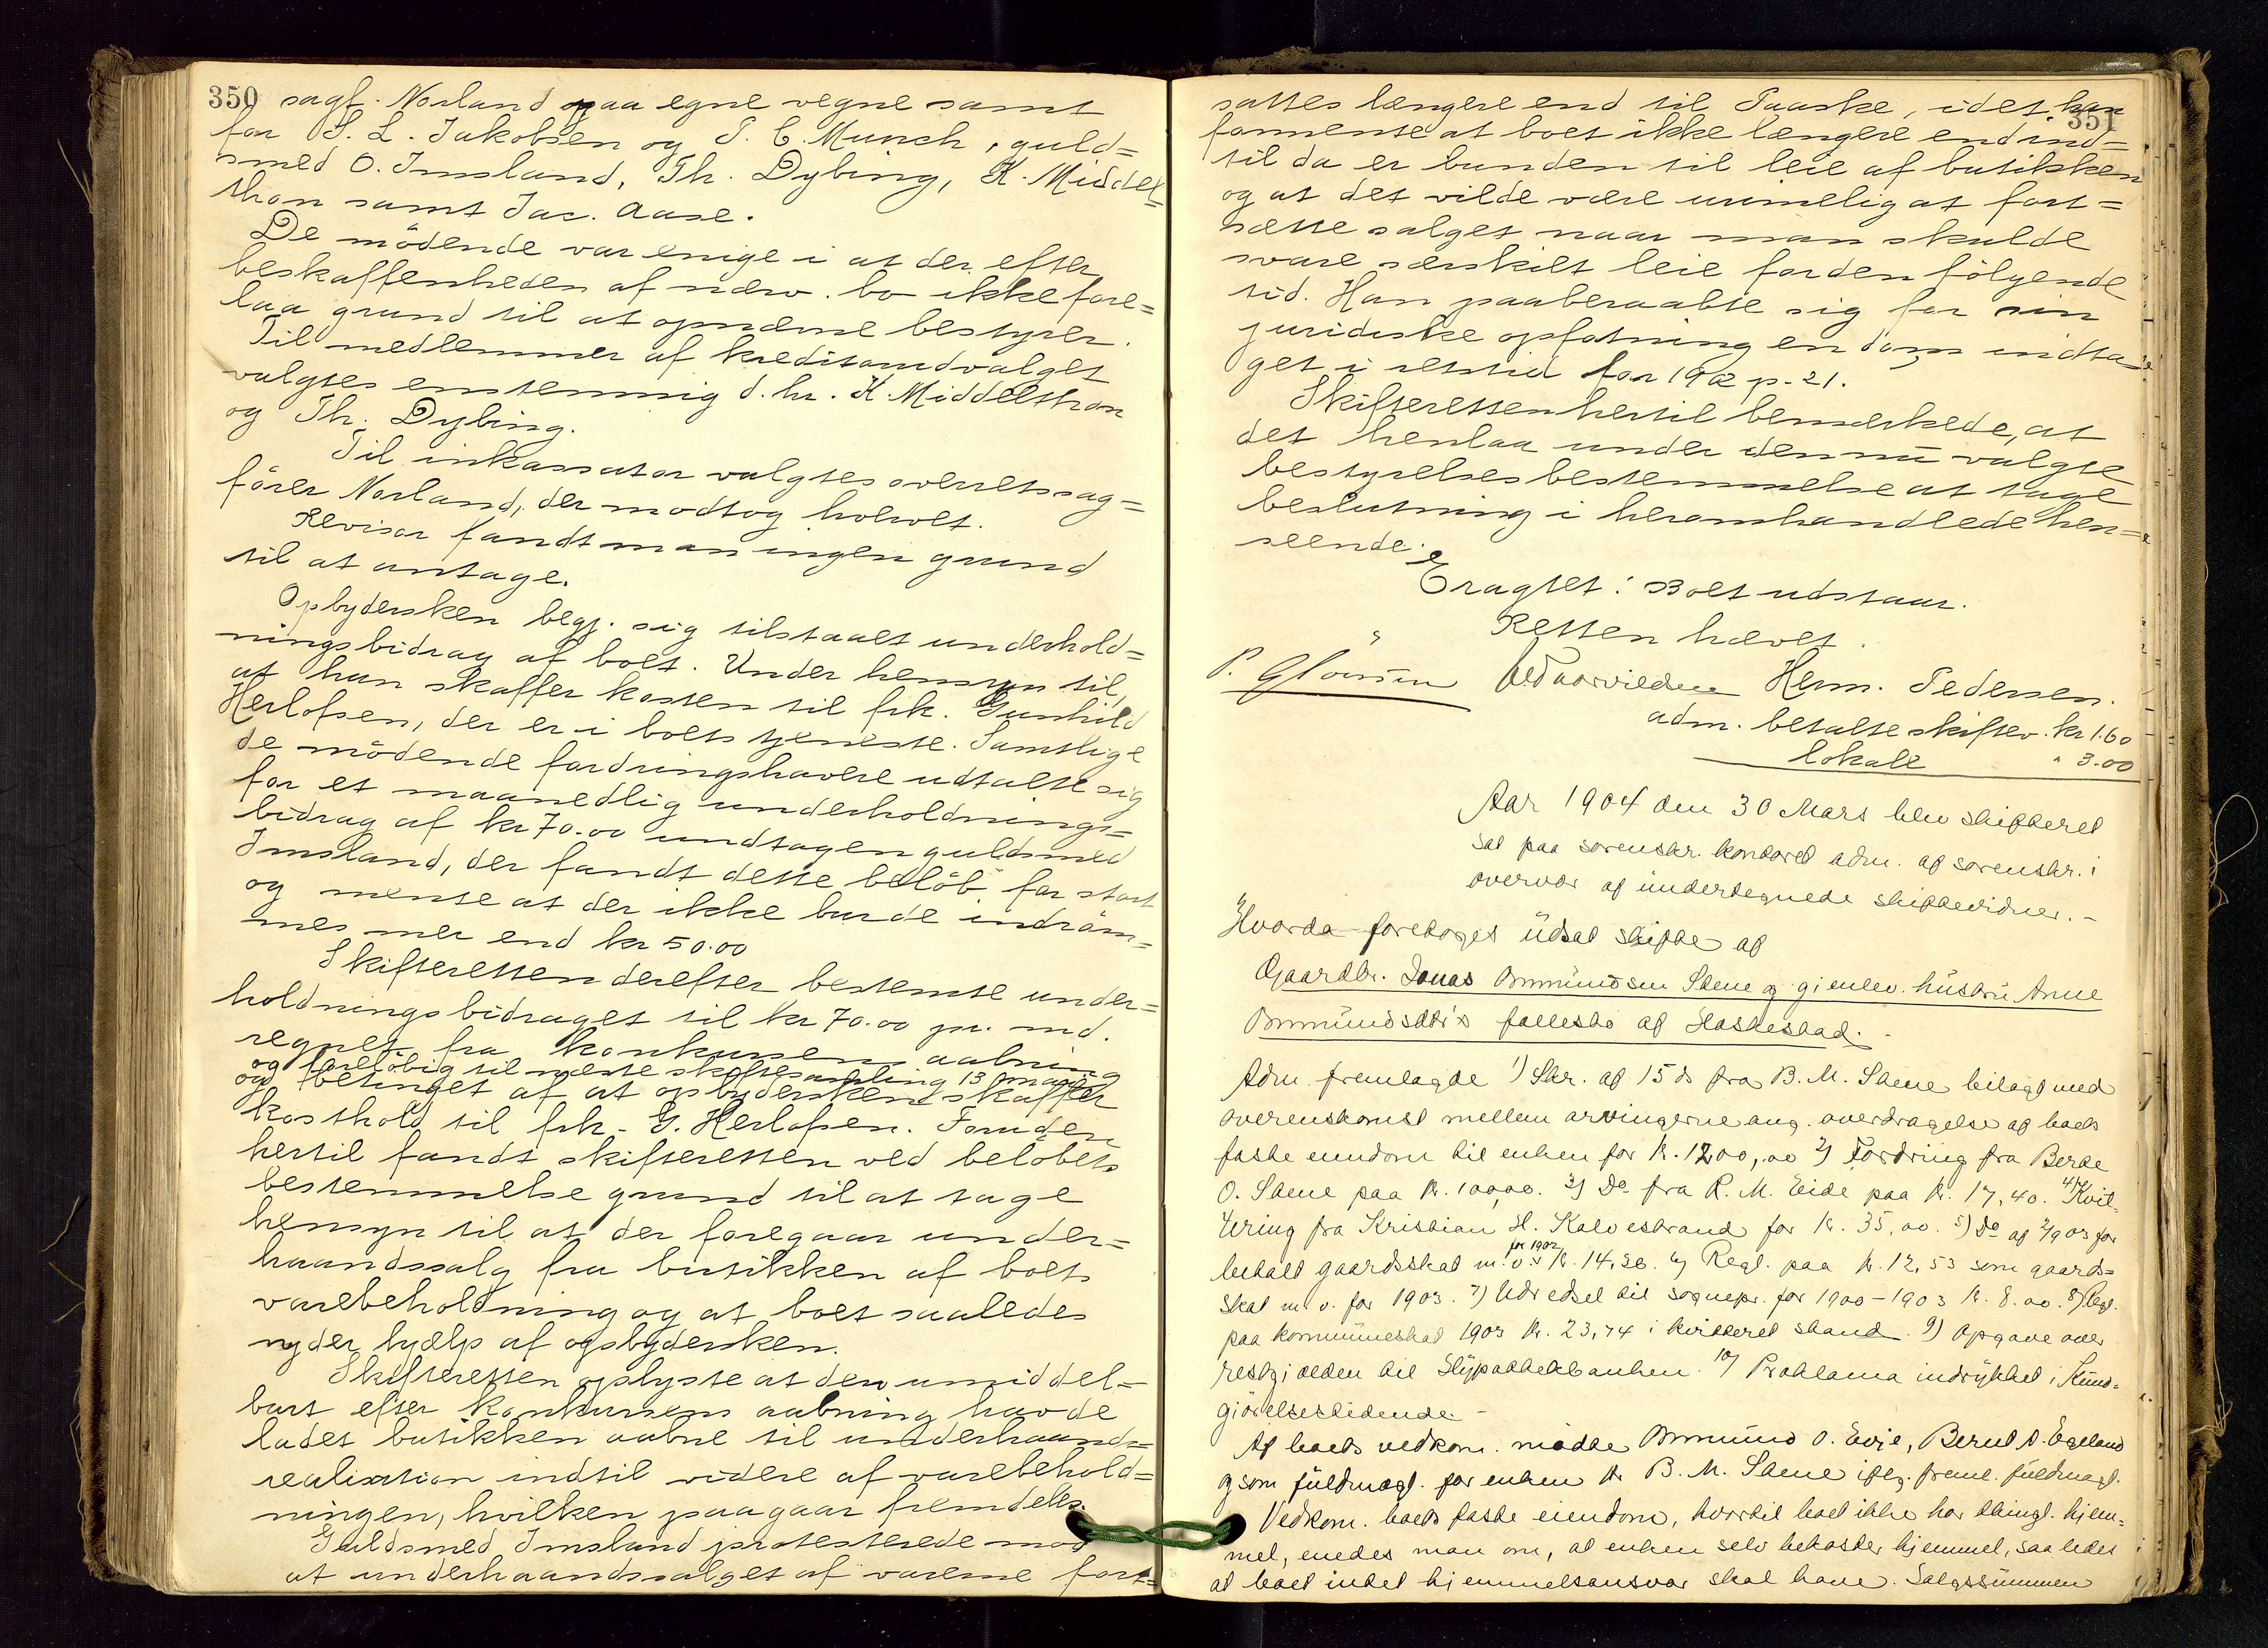 350
sagf. Norland paa egne vegne samt
for S. L. Jakobsen og P. C. Munch, guld=
smed O. Imsland, Th. Dybing, K. Middel=
thon samt Jac. Aase.
De mödende var enige i at der efter
beskaffenheden af nærv. bo ikke fore=
laa grund til at opnævne bestyrer.
Til medlemmer af kreditorudvalget
valgtes enstemmig d. hr. K. Middelthon
og Th. Dybing.
Til inkassator valgtes overretssag=
förer Norland, der modtog hvervet.
Revisor fandt man ingen grund
til at antage.
Opbydersken begj. sig tilstaaet underhold=
ningsbidrag af boet. Under hensyn til,
at hun skaffer kosten til frk. Gunhild
Herlofsen, der er i boets tjeneste. Samtlige
de mödende fordringshavere udtalte sig
for et maanedlig underholdnings=
bidrag af kr 70.00 undtagen guldsmed
Imsland, der fandt dette belöb for stort
og mente at der ikke burde indröm=
mes mer end kr 50.00
Skifteretten derefter bestemte under=
holdningsbidraget til kr 70.00 pr. md.
regnet fra konkursens aabning
og foreløbig til næste skiftesamling 13 mai
og betinget af at opbydersken skaffer
kosthold til frk. G. Herlofsen. Foruden
hertil fandt skifteretten ved belöbets
bestemmelse grund til at tage
hensyn til at der foregaar under=
haandssalg fra butikken af boets
varebeholdning og at boet saaledes
nyder hjælp af opbydersken.
Skifteretten oplyste at den umiddel=
bart efter konkursens aabning havde
ladet butikken aabne til underhaands=
realisation indtil videre af varebehold=
ningen, hvilken paagaar fremdeles.
Guldsmed Imsland protesterede mod
at underhaandssalget af varerne fort=
351
sattes længere end til Paaske, idet han
formente at boet ikke længere end ind=
til da er bunden til leie af butikken
og at det vilde være urimelig at fort=
sætte salget naar man skulde
svare særskilt leie for den fölgende
tid. Han paaberaabte sig for sin
juridiske opfatning en dom indta=
get i retstid for 1902 p. 21.
Skifteretten hertil bemærkede, at
det henlaa under den nu valgte
bestyrelses bestemmelse at tage
beslutning i heromhandlede hen=
seende.
Eragtet: Boet udstaar.
Retten hævet.
Herm. Pedersen.
adm. betalte skiftev. kr 1.60
lokale " 3.00
Aar 1904 den 30 Mars blev skifteret
sat paa sorenskr. kontoret adm. af sorenskr. i
overvær af undertegnede skiftevidner. -
Hvorda foretoges üdsat skifte af
Gaardbr. Jonas Ommündsen Stene og gjenlev. hüstrü Anne
Ommündsdtr's fællesbo af Haskestad. -
Adm. fremlagde 1) Skr. af 15 ds fra B. M. Stene bilagt med
overenskomst mellem arvingerne ang. overdragelse af boets
faste eiendom til enken for kr. 1200,00 2) Fordring fra Berte
O. Stene paa kr. 100,00. 3) Do fra R. M. Eide paa kr. 17,40. 4) Kvit=
tering fra Kristian H. Kalvestrand for kr. 35,00. 5) Do af 2/9 03 for
betalt gaardsskat m. v. for 1902 kr. 14,36. 6) Regl. paa kr. 12,53 som gaards=
skat m. v. for 1903. 7) Udredsel til sognepr. for 1900-1903 kr. 8.00. 8) Regl.
paa kommüneskat 1903 kr. 23,74 i kvitteret stand. 9) Opgave over
restgjælden til Hÿpothekbanken. 10) Proklama indrÿkket i Kund=
gjørelsestidende. -
Af boets vedkom. mødte Ommünd O. Evje, Bernt A. Egeland
og som füldmægt. for enken hr. B. M. Stene iflg. freml. füldmagt.
Vedkom. boets faste eiendom, hvortil boet ikke har thingl. hjem=
mel, enedes man om, at enken selv bekoster hjemmel, saaledes
at boet intet hjemmelsansvar skal have. Salgssümmen